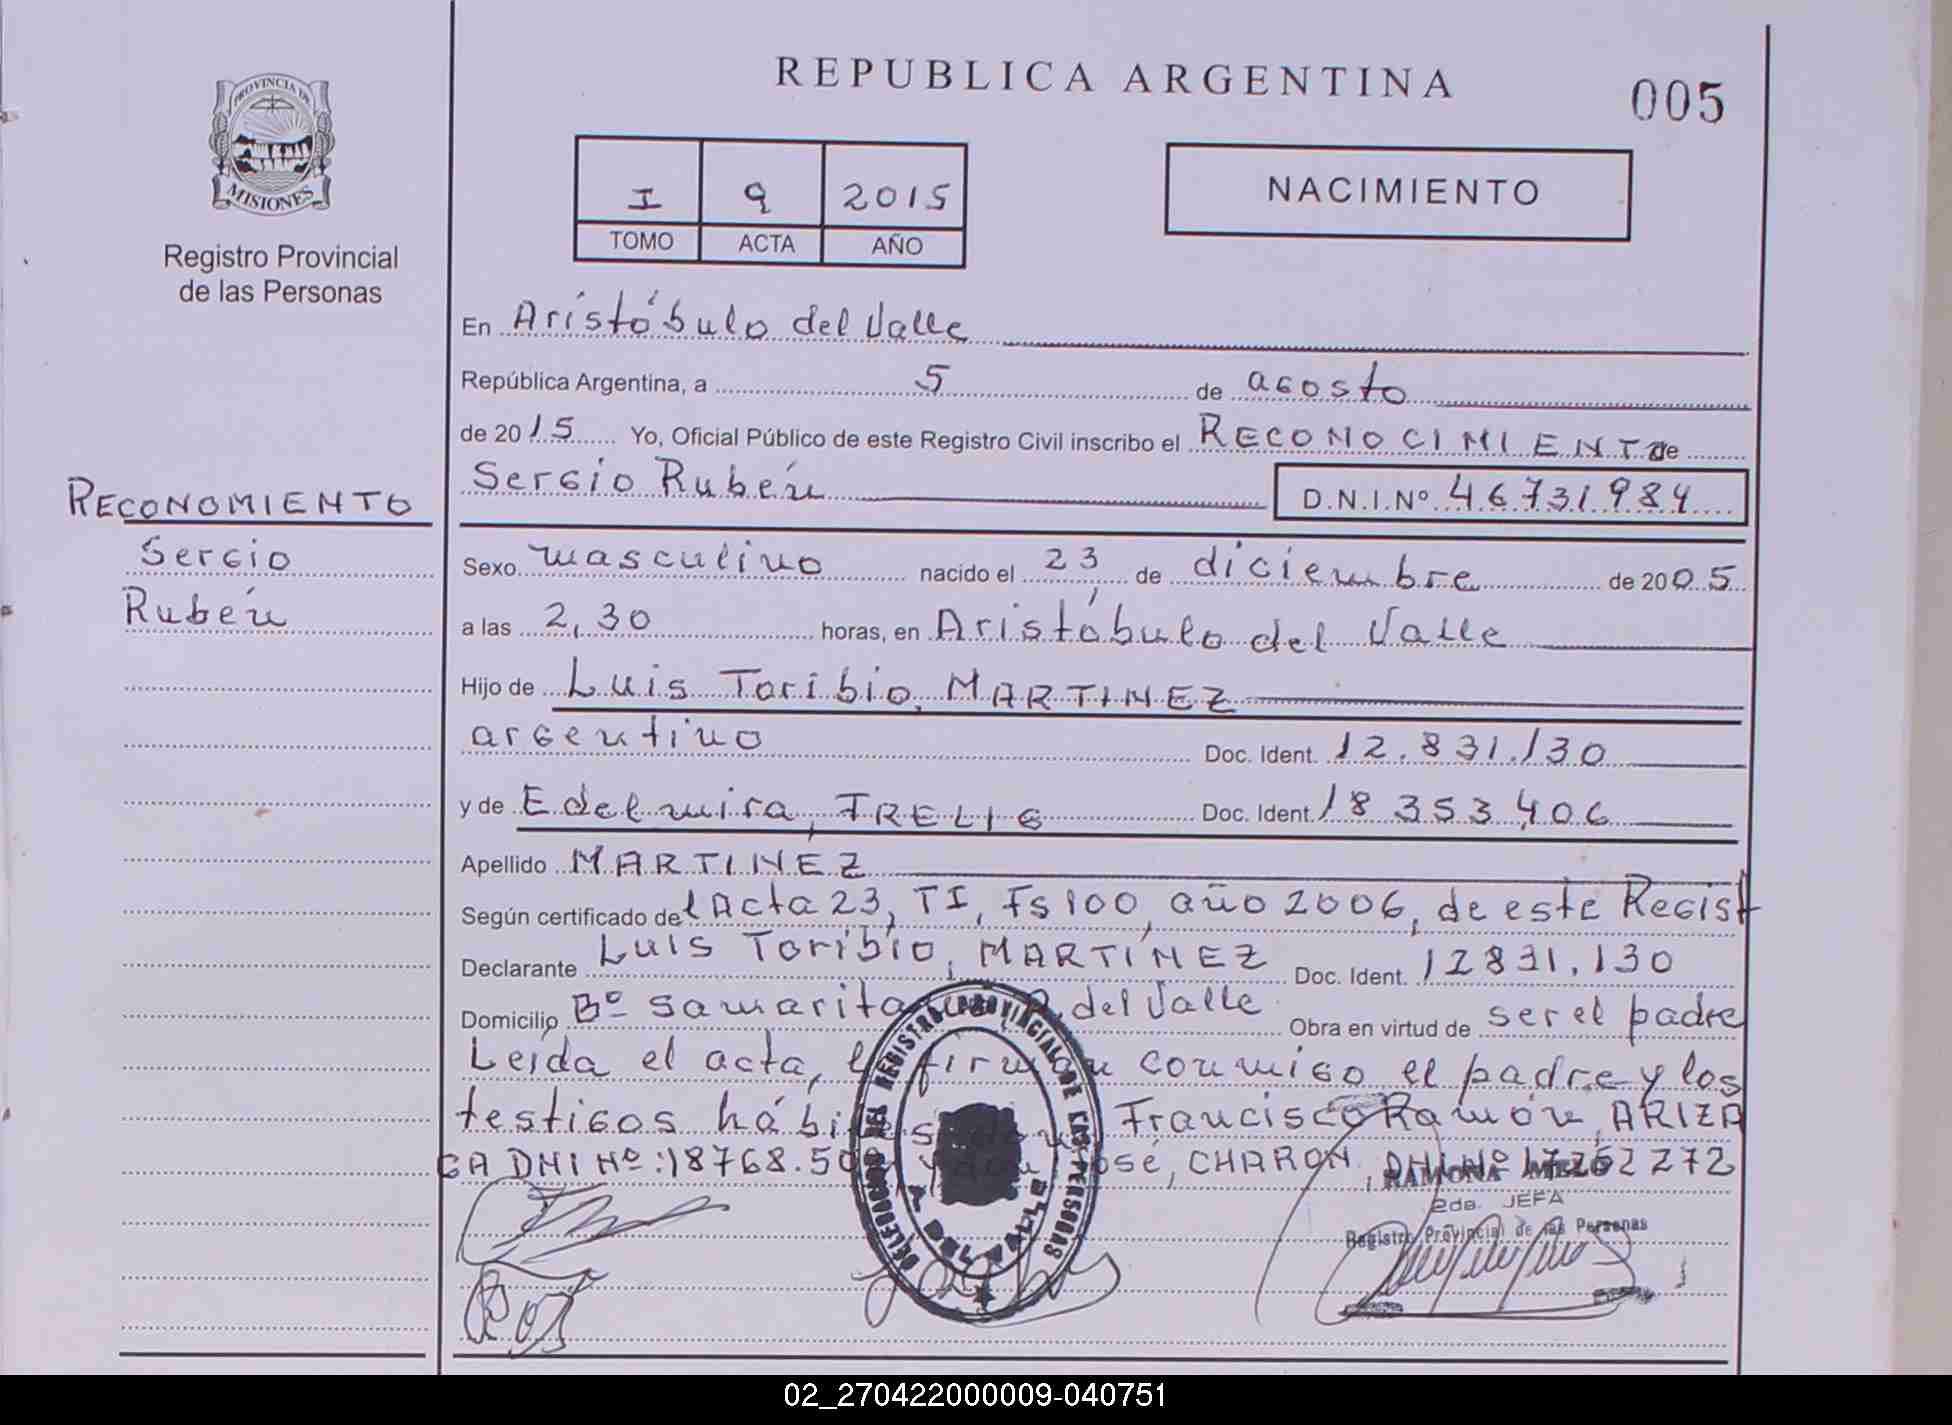 REPUBLICA ARGENTINA
005
PROVINCIA DE
MISIONES
Registro Provincial
de las Personas
I 9 2015
TOMO ACTA AÑO
NACIMIENTO
En Aristóbulo del Valle
República Argentina, a 5 de agosto
de 2015 Yo, Oficial Público de este Registro Civil inscribo el RECONOCIMIENTO de
Sergio Rubén D.N.I.Nº 46731984
RECONOMIENTO
Sergio
Rubén
Sexo masculino nacido el 23 de diciembre de 2005
a las 2,30 horas, en Aristóbulo del Valle
Hijo de Luis Toribio, MARTINEZ
argentino Doc. Ident. 12.831.130
y de Edelmira, FRELIG Doc. Ident. 18 353,406
Apellido MARTINEZ
Según certificado del Acta 23, TI, Fs 100, año 2006, de este Regist
Declarante Luis Toribio, MARTINEZ Doc. Ident. 12831.130
Domicilio Bº Samarita del Valle Obra en virtud de ser el padre
Leida el acta, la firman conmigo el padre y los
testigos hábiles don Francisco Ramón, ARIZA
GA DNI Nº: 18768.50 y don José, CHARON DNI Nº 17262272
DELEGACION DEL REGISTRO PROVINCIAL DE LAS PERSONAS
A. DEL VALLE
RAMONA MELO
2da. JEFA
Registro Provincial de las Personas
02_270422000009-040751